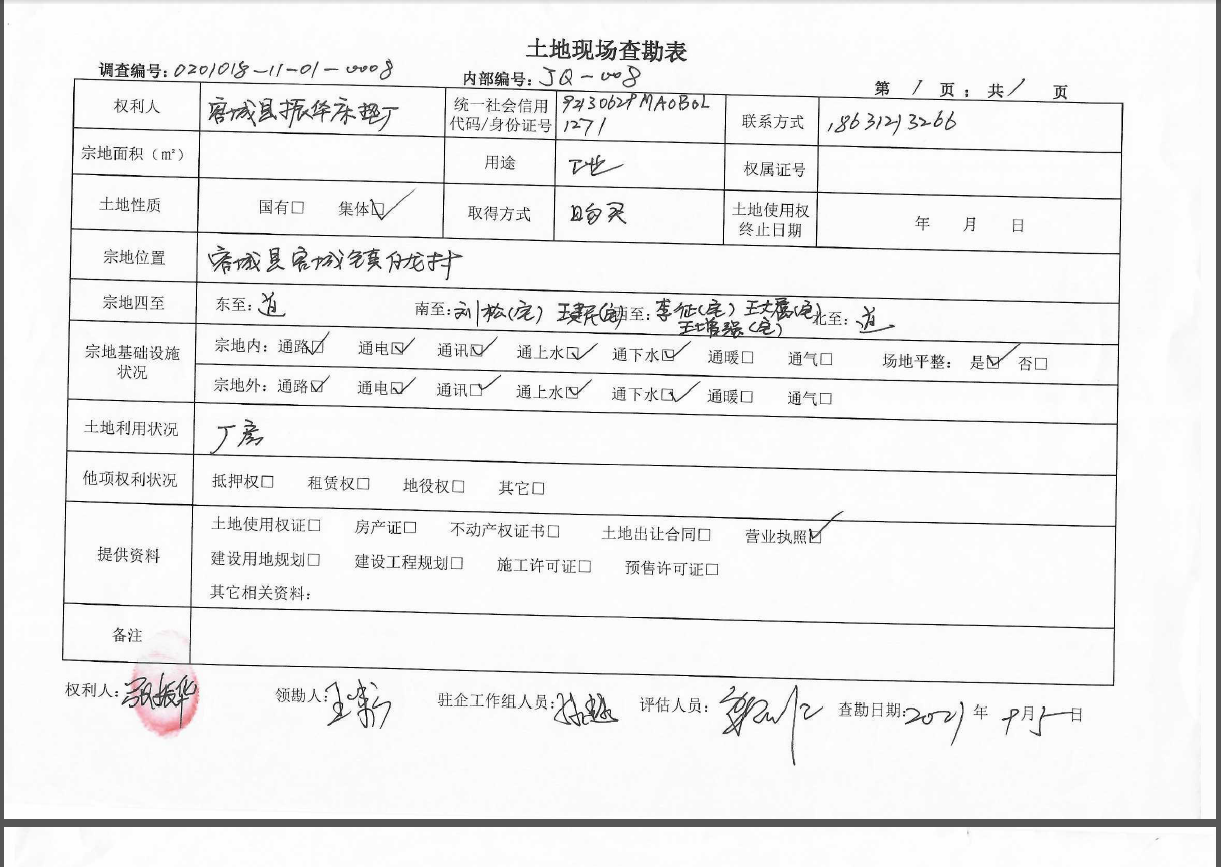 土地现场查勘表
调查编号:0201018-11-01-0008 内部编号:JQ-008 第1页;共1页
权利人 容城县振华床垫厂 统一社会信用代码/身份证号 92130629MA0B0L1271 联系方式 18631213266
宗地面积(㎡) 用途 工业 权属证号
土地性质 国有□ 集体☑ 取得方式 购买 土地使用权终止日期 年 月 日
宗地位置 容城县容城镇 村
宗地四至 东至:道 南至:刘松(宅) 王 (宅) 西至:李征(宅) 王 (宅) 王增强(宅) 北至:道
宗地基础设施状况 宗地内:通路☑ 通电☑ 通讯☑ 通上水☑ 通下水☑ 通暖□ 通气□ 场地平整: 是☑ 否□
宗地外:通路☑ 通电☑ 通讯☑ 通上水☑ 通下水☑ 通暖□ 通气□
土地利用状况 厂房
他项权利状况 抵押权□ 租赁权□ 地役权□ 其它□
提供资料 土地使用权证□ 房产证□ 不动产权证书□ 土地出让合同□ 营业执照☑
建设用地规划□ 建设工程规划□ 施工许可证□ 预售许可证□
其它相关资料:
备注
权利人: 振华 领勘人:王 驻企工作组人员: 评估人员: 查勘日期:2021年9月5日